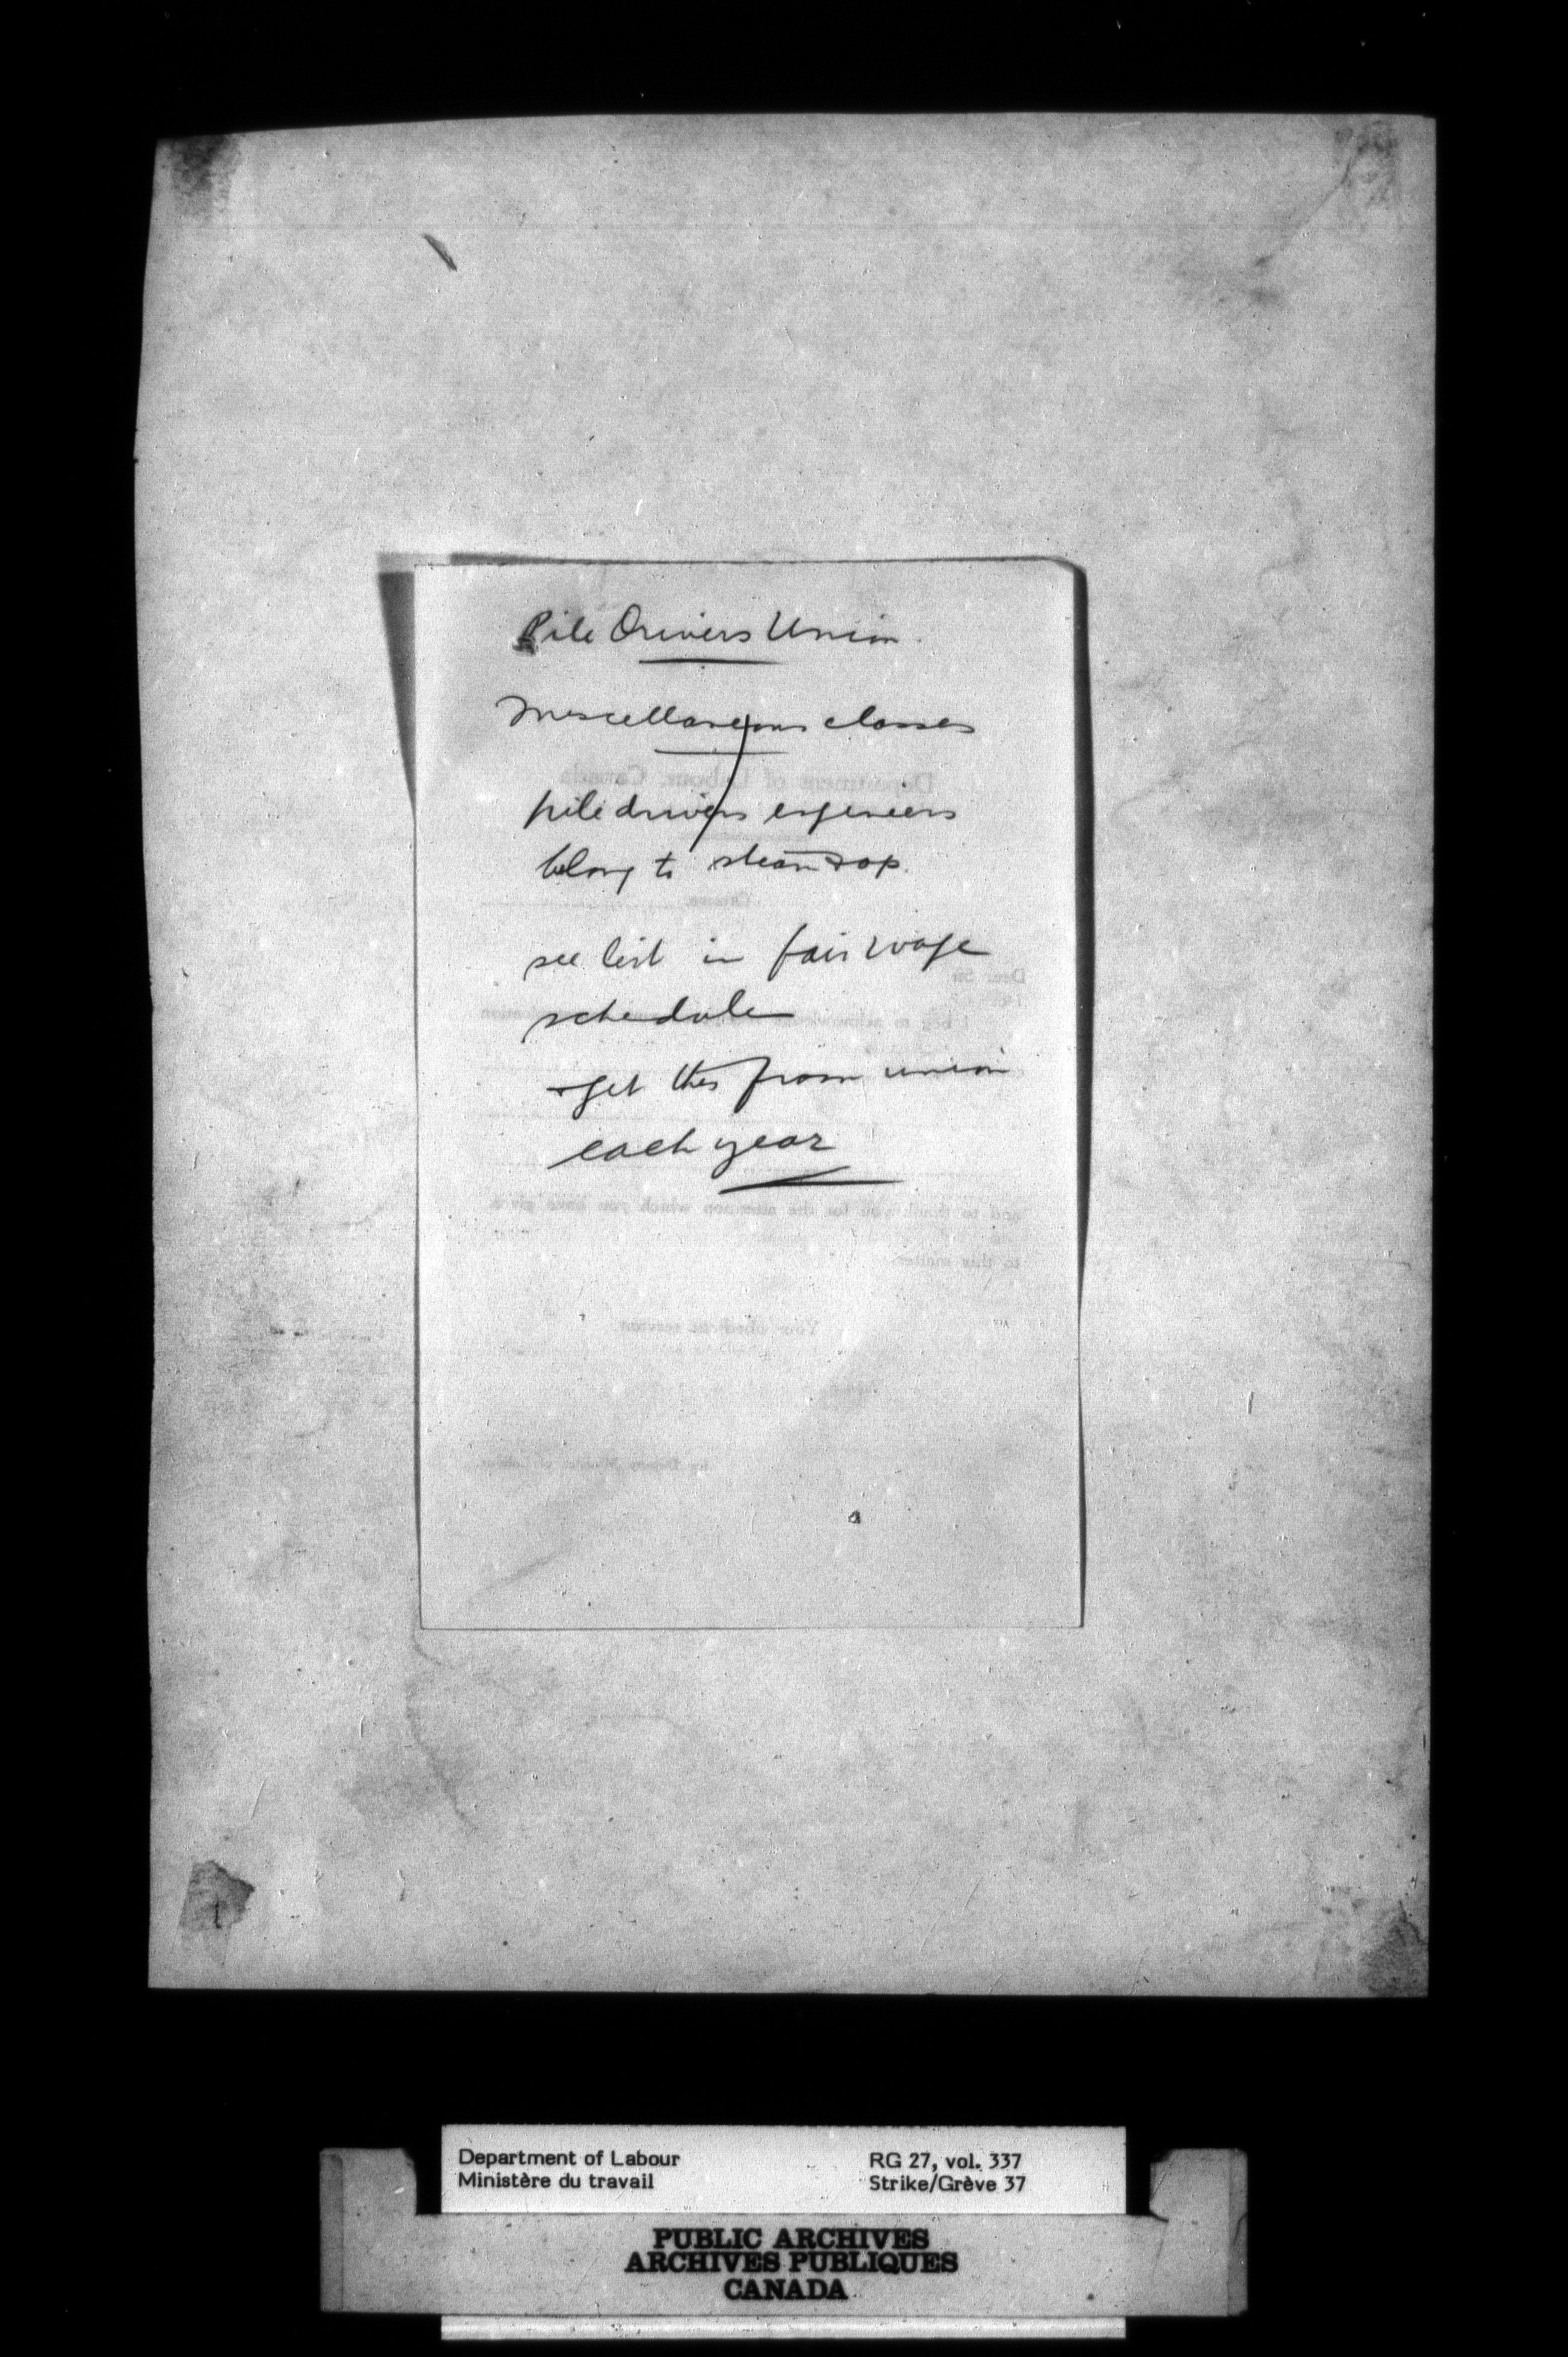 Pile Drivers Union
Miscellaneous classes
pile drivers engineers
belong to steam & op.
see list in fair wage
schedule
& get this from union
each year
Department of Labour, Canada
Ottawa,
Dear Sir
and to thank you for the attention which you have given
to this matter.
Your obedient servant,
Department of Labour
Ministère du travail
RG 27, vol. 337
Strike/Grève 37
PUBLIC ARCHIVES
ARCHIVES PUBLIQUES
CANADA